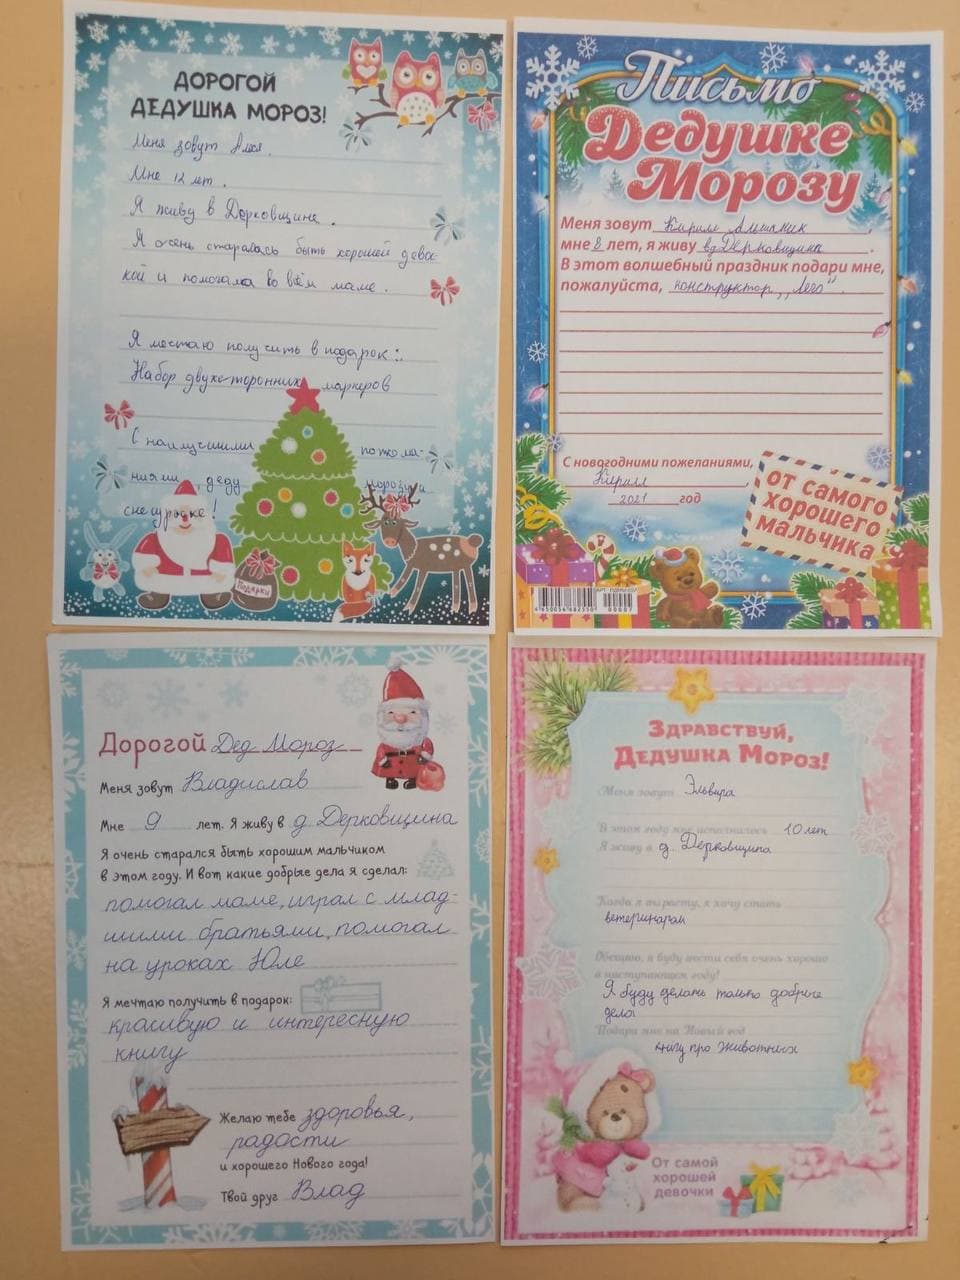 ДОРОГОЙ
ДЕДУШКА МОРОЗ!
Меня зовут Алеся.
Мне 12 лет.
Я живу в Дерковщине.
Я очень старалась быть хорошей девоч-
кой и помогала во всём маме.
Я мечтаю получить в подарок:
Набор двухсторонних маркеров
С наилучшими пожела-
ниями, деду морозу и
снегурочке!
Подарки
Письмо
Дедушке
Морозу
Меня зовут Кирилл
мне 8 лет, я живу в д Дерковщина.
В этот волшебный праздник подари мне,
пожалуйста, конструктор „Лего".
С новогодними пожеланиями,
Кирилл
2021 год
от самого
хорошего
мальчика
Дорогой Дед Мороз
Меня зовут Владислав
Мне 9 лет. Я живу в д Дерковщина
Я очень старался быть хорошим мальчиком
в этом году. И вот какие добрые дела я сделал:
помогал маме, играл с млад-
шими братьями, помогал
на уроках Юле
Я мечтаю получить в подарок:
красивую и интересную
книгу
Желаю тебе здоровья,
радости
и хорошего Нового года!
Твой друг Влад
Здравствуй,
Дедушка Мороз!
Меня зовут Эльвира
В этом году мне исполнилось 10 лет
Я живу в д. Дерковщина
Когда я вырасту, я хочу стать
ветеринаром
Обещаю, я буду вести себя очень хорошо
в наступающем году!
Я буду делать только добрые
дела
Подари мне на Новый год
книгу про животных
От самой
хорошей
девочки